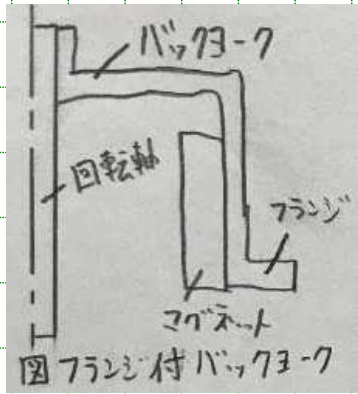 バックヨーク
回転軸
フランジ
マグネット
図 フランジ付バックヨーク